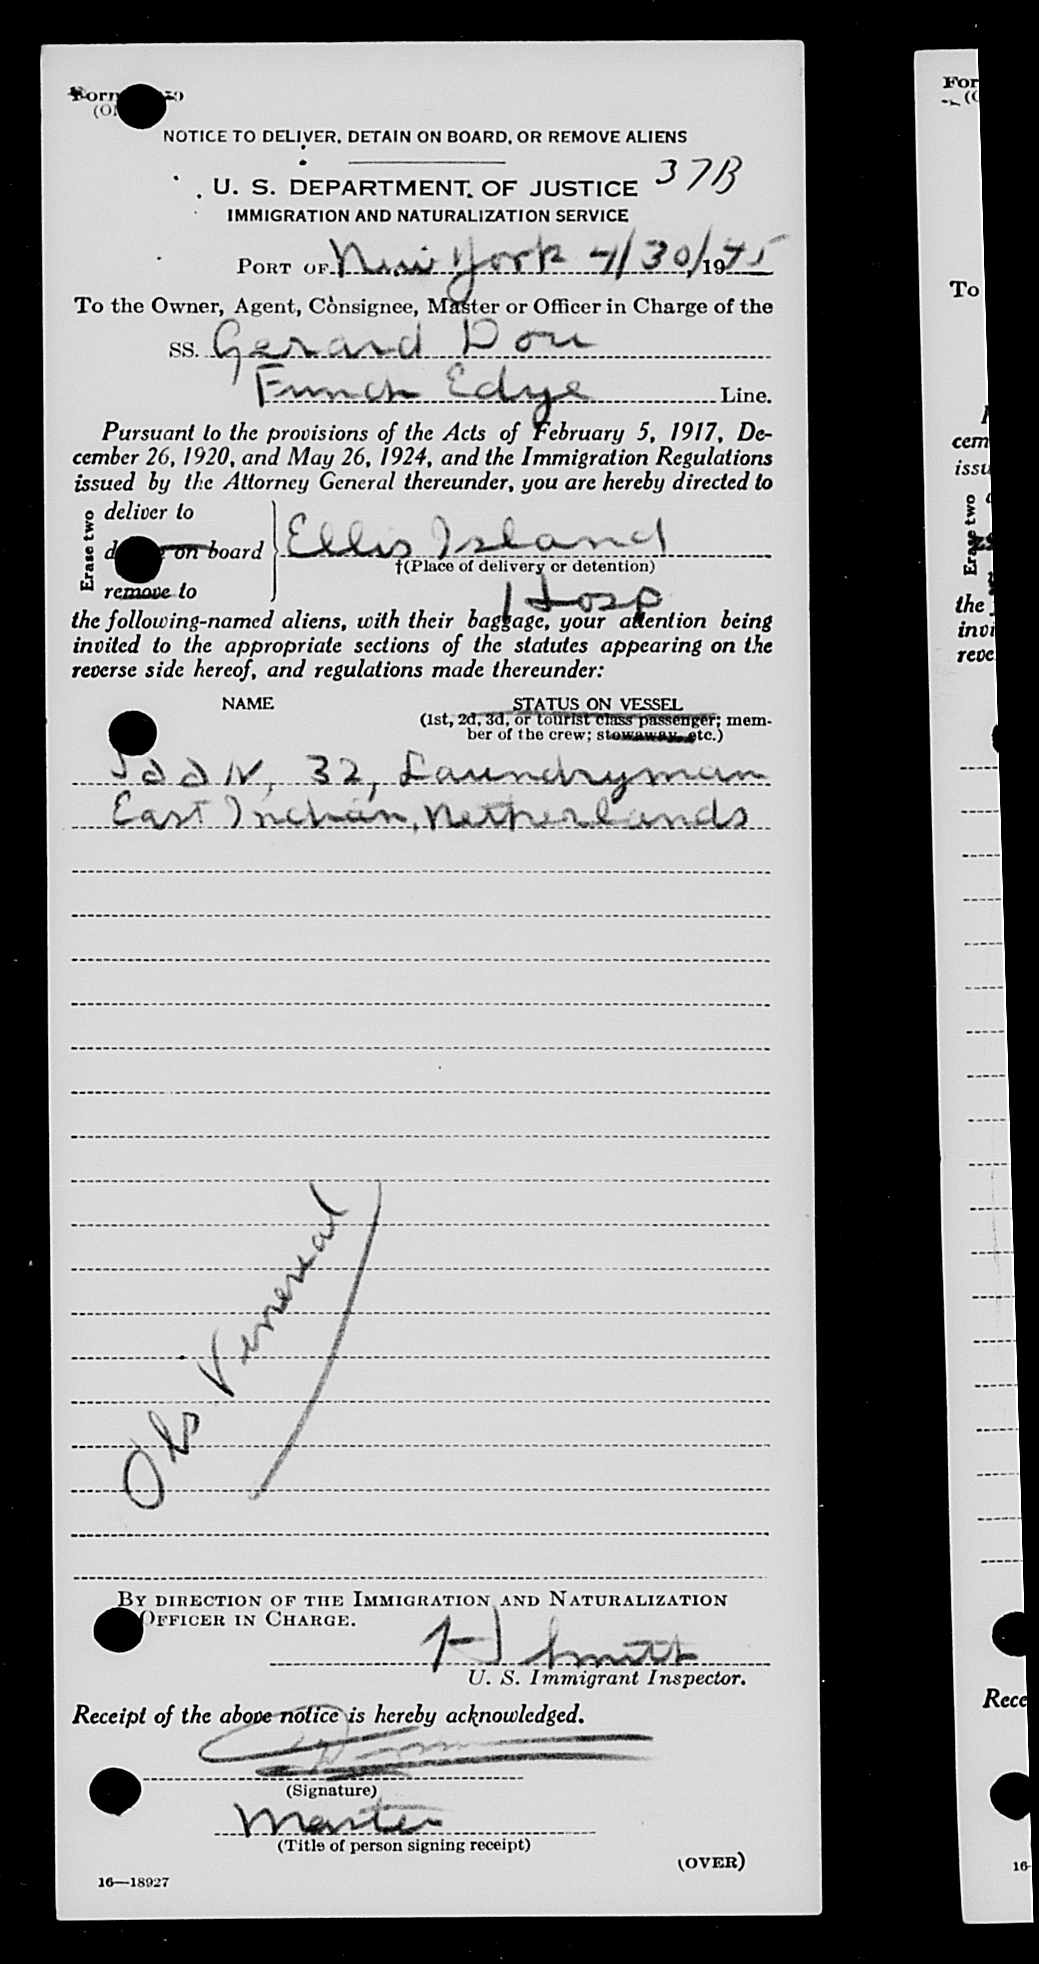 NOTICE TO DELIVER, DETAIN ON BOARD, OR REMOVE ALIENS
37B
U. S. DEPARTMENT OF JUSTICE
IMMIGRATION AND NATURALIZATION SERVICE
PORT OF New York 4/30/1945
To the Owner, Agent, Consignee, Master or Officer in Charge of the
SS. Gerard Dou
Funch Edye Line.
Pursuant to the provisions of the Acts of February 5, 1917, De-
cember 26, 1920, and May 26, 1924, and the Immigration Regulations
issued by the Attorney General thereunder, you are hereby directed to
Erase two
deliver to
on board
remove to
Ellis Island
†(Place of delivery or detention)
Hosp
the following-named aliens, with their baggage, your attention being
invited to the appropriate sections of the statutes appearing on the
reverse side hereof, and regulations made thereunder:
NAME STATUS ON VESSEL
(1st, 2d, 3d, or tourist class passenger; mem-
ber of the crew; stowaway, etc.)
32, Laundryman
East Indian, Netherlands
Obs Venereal
BY DIRECTION OF THE IMMIGRATION AND NATURALIZATION
OFFICER IN CHARGE.
H Smith
U. S. Immigrant Inspector.
Receipt of the above notice is hereby acknowledged.
(Signature)
Master
(Title of person signing receipt)
(OVER)
16—18927
For
To
cem
issu
Erase two
the
invi
reve
Rece
16